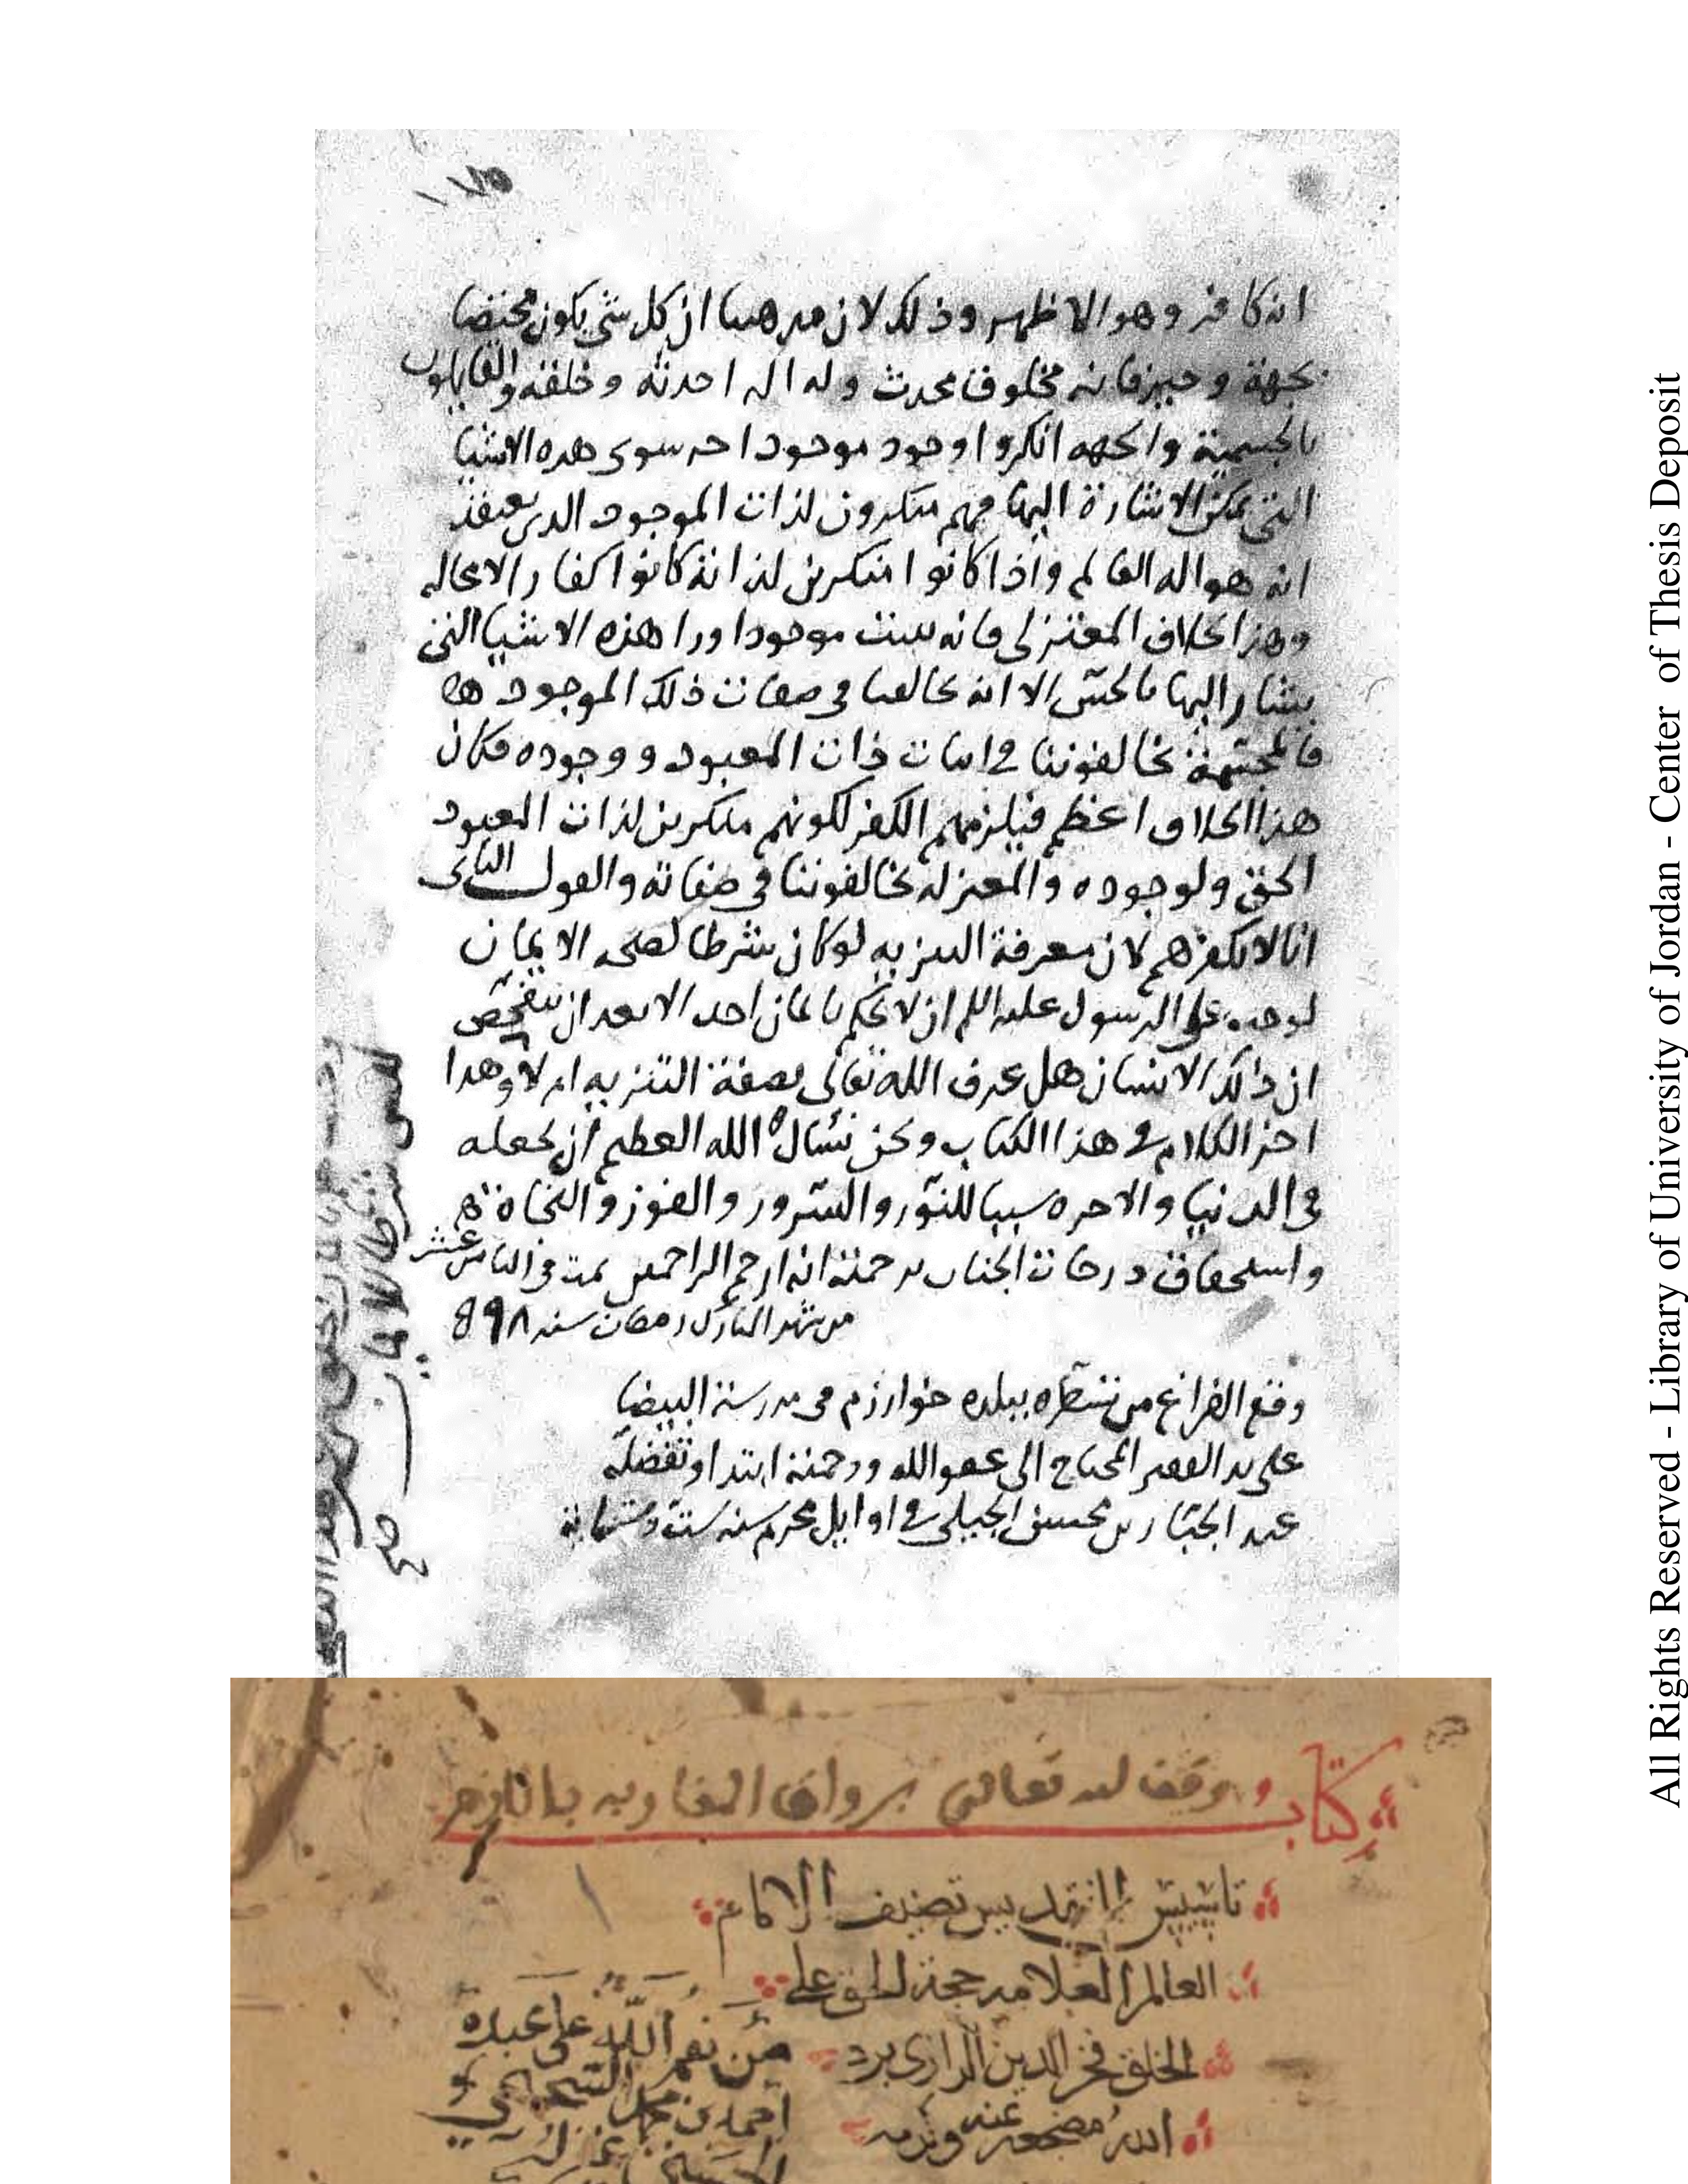 انه كافر وهو الاظهر وذلك لان مذهبنا ان كل شي يكون مختصا
بجهة وحيز فانه مخلوق محدث وله اله احدثه وخلقه والقايلون
بالجسمية والجهه انكروا وجود موجود اخر سوى هذه الاشيا
التي يمكن الاشارة اليها فهم منكرون لذات الموجود الذي يعتقد
انه هو اله العالم واذا كانوا منكرين لذاته كانوا كفارا لا محاله
وهذا بخلاف المعتزلي فانه يثبت موجودا ورا هذه الاشيا التي
يشار اليها بالحس الا انه يخالفنا في صفات ذلك الموجود
فالمجسمة يخالفوننا في اثبات ذات المعبود ووجوده فكان
هذا الخلاف اعظم فيلزمهم الكفر لكونهم منكرين لذات المعبود
الحق ولوجوده والمعتزله يخالفوننا في صفاته والقول الثاني
انا لا نكفرهم لان معرفة التنزيه لو كان شرطا لصحه الايمان
لوجب على الرسول عليه السلم ان لا يحكم بايمان احد الا بعد ان يتفحص
ان ذلك الانسان هل عرف الله تعالى بصفة التنزيه ام لا وهذا
اخر الكلام في هذا الكتاب ونحن نسال الله العظيم ان يجعله
في الدنيا والاخره سببا للنور والسرور والفوز والنجاة
واستحقاق درجات الجنات برحمته انه ارحم الراحمين تمت في الثامن عشر
من شهر المبارك رمضان سنه ٨٩٨
وقع الفراغ من تسطره ببلده خوارزم في مدرسة البيضا
على يد الفقير المحتاج الى عفو الله ورحمته ابتدا وتفضله
عبد الجبار بن محسن الجيلي في اوايل محرم سنه ستة وستماية
كتاب
وقف لله تعالى برواق المغاربه بالازهر
تاسيس التقديس تصنيف الامام
العالم العلامه حجة الحق على
الخلق فخر الدين الرازي برد
الله مضجعه
من نعم الله على عبده
احمد بن محمد
All Rights Reserved - Library of University of Jordan - Center of Thesis Deposit